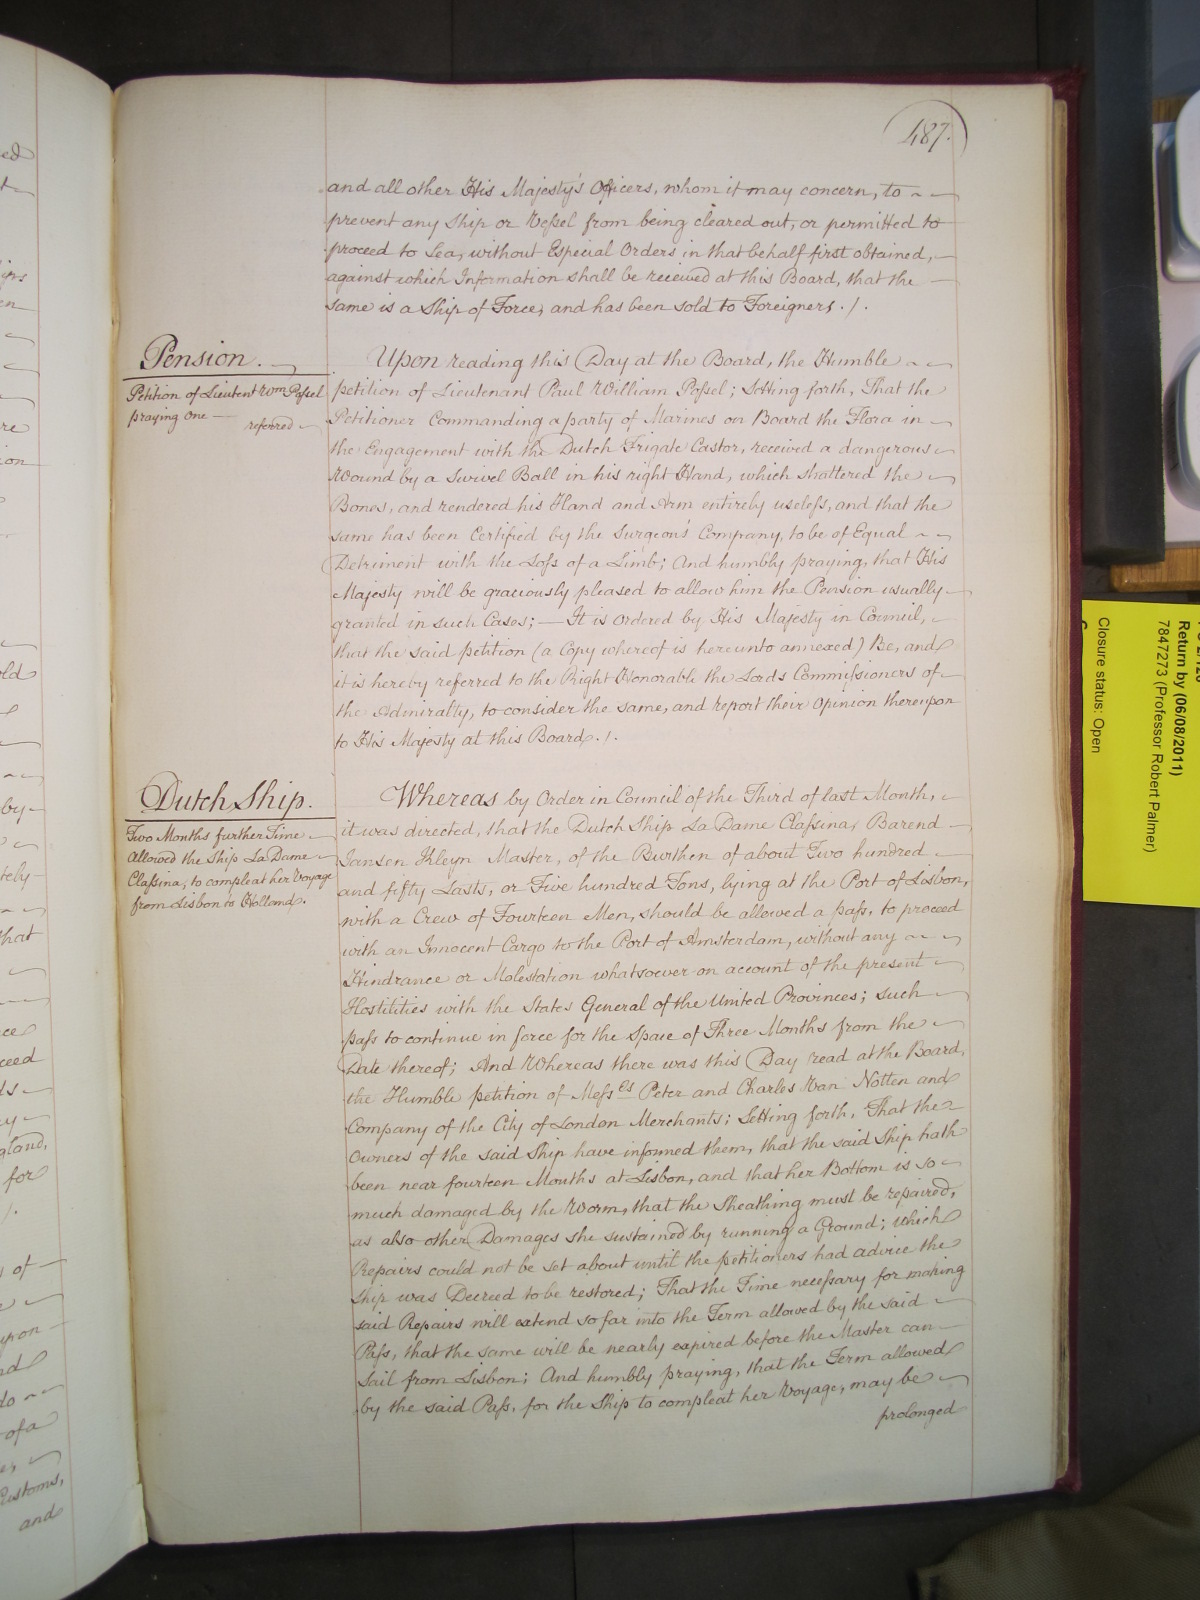 487.
and all other His Majesty's Officers, whom it may concern, to
prevent any Ship or Vessel from being cleared out, or permitted to
proceed to Sea, without Especial Orders in that behalf first obtained,
against which Information shall be received at this Board, that the
same is a Ship of Force, and has been sold to Foreigners ./.
Pension.
Petition of Lieutent Wm Possel
praying one
referred
Upon reading this Day at the Board, the Humble
petition of Lieutenant Paul William Possel; Setting forth, That the
Petitioner Commanding a party of Marines on Board the Flora in
the Engagement with the Dutch Frigate Castor, received a dangerous
Wound by a Swivel Ball in his right Hand, which shattered the
Bones, and rendered his Hand and Arm entirely useless, and that the
same has been Certified by the Surgeon's Company, to be of Equal
Detriment with the Loss of a Limb; And humbly praying, that His
Majesty will be graciously pleased to allow him the Pension usually
granted in such Cases; — It is ordered by His Majesty in Council,
that the said petition (a Copy whereof is hereunto annexed) Be, and
it is hereby referred to the Right Honorable the Lords Commissioners of
the Admiralty, to consider the same, and report their Opinion thereupon
to His Majesty at this Board ./.
Dutch Ship.
Two Months further Time
Allowed the Ship La Dame
Classina, to compleat her Voyage
from Lisbon to Holland.
Whereas by Order in Council of the Third of last Month,
it was directed, that the Dutch Ship La Dame Classina, Barend
Jansen Kleyn Master, of the Burthen of about Two hundred
and fifty Lasts, or Five hundred Tons, lying at the Port of Lisbon,
with a Crew of Fourteen Men, should be allowed a pass, to proceed
with an Innocent Cargo to the Port of Amsterdam, without any
Hindrance or Molestation whatsoever on account of the present
Hostilities with the States General of the United Provinces; such
pass to continue in force for the Space of Three Months from the
Date thereof; And Whereas there was this Day read at the Board,
the Humble petition of Messrs Peter and Charles Van Notten and
Company of the City of London Merchants; Setting forth, That the
Owners of the said Ship have informed them, that the said Ship hath
been near fourteen Months at Lisbon, and that her Bottom is so
much damaged by the Worm, that the Sheathing must be repaired,
as also other Damages she sustained by running a Ground; which
Repairs could not be set about until the petitioners had advice the
Ship was Decreed to be restored; That the Time necessary for making
said Repairs will extend so far into the Term allowed by the said
Pass, that the same will be nearly expired before the Master can
Sail from Lisbon; And humbly praying, that the Term allowed
by the said Pass, for the Ship to compleat her Voyage, may be
prolonged
Return by (06/08/2011)
7847273 (Professor Robert Palmer)
Closure status: Open